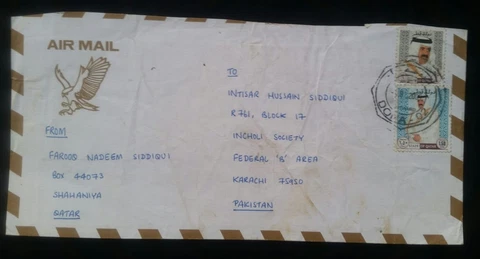 AIR MAIL
FROM
FAROOQ NADEEM SIDDIQUI
BOX 44073
SHAHANIYA
QATAR
TO
INTISAR HUSSAIN SIDDIQUI
R761, BLOCK 17
INCHOLI SOCIETY
FEDERAL 'B' AREA
KARACHI 75950
PAKISTAN
DOHA